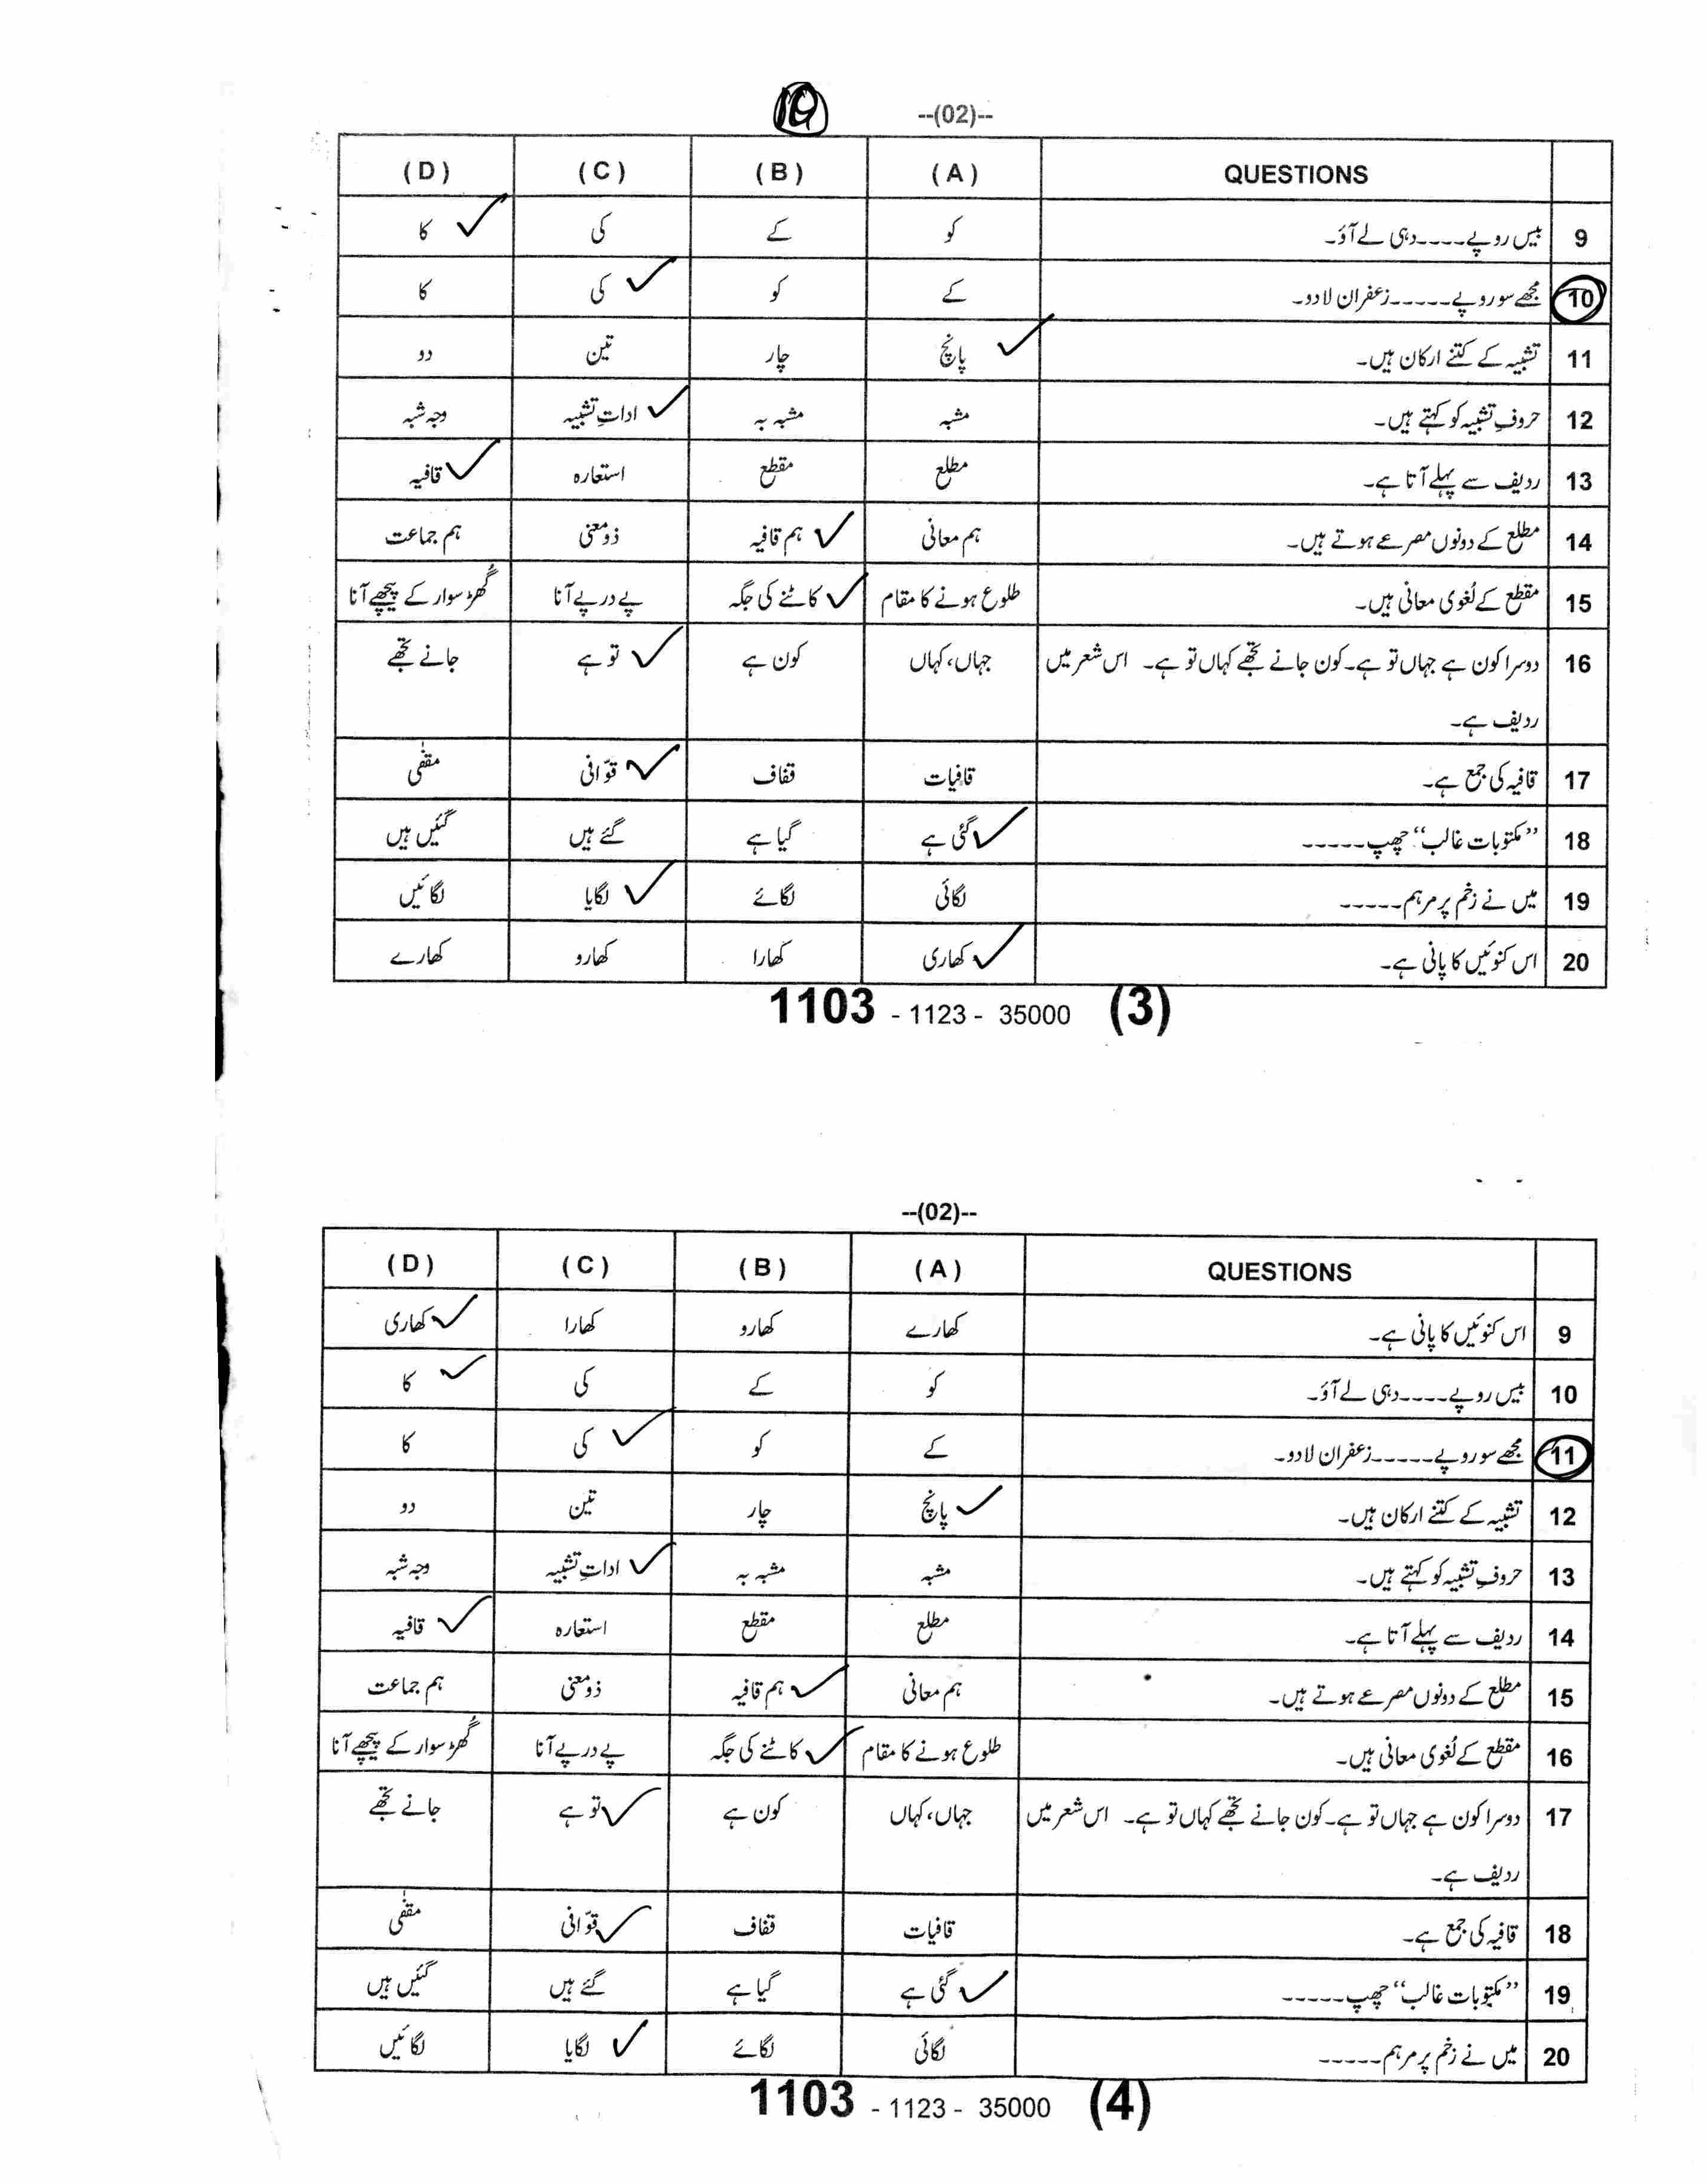 10
--(02)--
QUESTIONS (A) (B) (C) (D)
9 بیس روپے----دہی لے آؤ۔ کو کے کی کا ✓
10 مجھے سو روپے-----زعفران لا دو۔ کے کو کی ✓ کا
11 تشبیہ کے کتنے ارکان ہیں۔ پانچ ✓ چار تین دو
12 حروفِ تشبیہ کو کہتے ہیں۔ مشبہ مشبہ بہ اداتِ تشبیہ ✓ وجہ شبہ
13 ردیف سے پہلے آتا ہے۔ مطلع مقطع استعارہ قافیہ ✓
14 مطلع کے دونوں مصرعے ہوتے ہیں۔ ہم معانی ہم قافیہ ✓ ذومعنی ہم جماعت
15 مقطع کے لُغوی معانی ہیں۔ طلوع ہونے کا مقام کاٹنے کی جگہ ✓ پے در پے آنا گُھڑ سوار کے پیچھے آنا
16 دوسرا کون ہے جہاں تو ہے۔ کون جانے تجھے کہاں تو ہے۔ اس شعر میں جہاں، کہاں کون ہے تو ہے ✓ جانے تجھے
ردیف ہے۔
17 قافیہ کی جمع ہے۔ قافیات قفاف قوّافی ✓ مقفٰی
18 ”مکتوبات غالب“ چھپ----- گئی ہے ✓ گیا ہے گئے ہیں گئیں ہیں
19 میں نے زخم پر مرہم----- لگائی لگائے لگایا ✓ لگائیں
20 اس کنوئیں کا پانی ہے۔ کھاری ✓ کھارا کھارو کھارے
1103 - 1123 - 35000 (3)
--(02)--
QUESTIONS (A) (B) (C) (D)
9 اس کنوئیں کا پانی ہے۔ کھارے کھارو کھارا کھاری ✓
10 بیس روپے----دہی لے آؤ۔ کو کے کی کا ✓
11 مجھے سو روپے-----زعفران لا دو۔ کے کو کی ✓ کا
12 تشبیہ کے کتنے ارکان ہیں۔ پانچ ✓ چار تین دو
13 حروفِ تشبیہ کو کہتے ہیں۔ مشبہ مشبہ بہ اداتِ تشبیہ ✓ وجہ شبہ
14 ردیف سے پہلے آتا ہے۔ مطلع مقطع استعارہ قافیہ ✓
15 مطلع کے دونوں مصرعے ہوتے ہیں۔ ہم معانی ہم قافیہ ✓ ذومعنی ہم جماعت
16 مقطع کے لُغوی معانی ہیں۔ طلوع ہونے کا مقام کاٹنے کی جگہ ✓ پے در پے آنا گُھڑ سوار کے پیچھے آنا
17 دوسرا کون ہے جہاں تو ہے۔ کون جانے تجھے کہاں تو ہے۔ اس شعر میں جہاں، کہاں کون ہے تو ہے ✓ جانے تجھے
ردیف ہے۔
18 قافیہ کی جمع ہے۔ قافیات قفاف قوّافی ✓ مقفٰی
19 ”مکتوبات غالب“ چھپ----- گئی ہے ✓ گیا ہے گئے ہیں گئیں ہیں
20 میں نے زخم پر مرہم----- لگائی لگائے لگایا ✓ لگائیں
1103 - 1123 - 35000 (4)